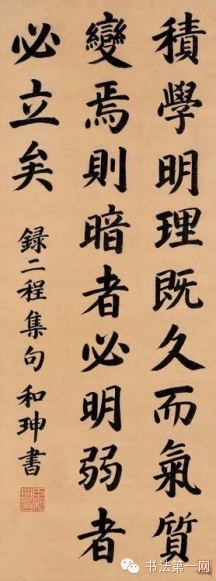 積學明理既久而氣質
變焉則暗者必明弱者
必立矣
録二程集句 和珅書
书法第一网